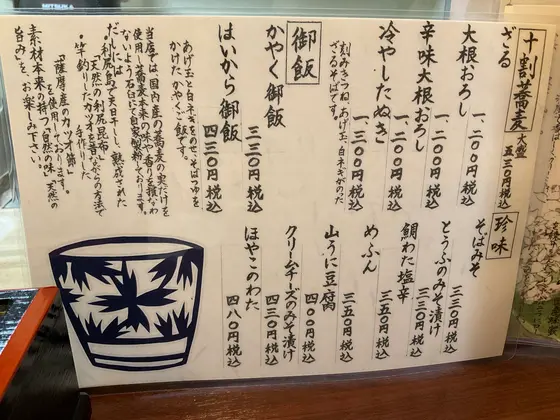 MITSUKA
十割蕎麦
ざる
大根おろし 一、二〇〇円税込
辛味大根おろし 一、二〇〇円税込
冷やしたぬき 一、一三〇円税込
刻みきつね、あげ玉、白ネギがのった
ざるそばです。
御飯
かやく御飯 三三〇円税込
はいから御飯 四三〇円税込
あげ玉と白ネギをのせ、そばつゆを
かけた かやくご飯です。
当店では、国内産の蕎麦の実だけを
使用し蕎麦本来の味や香りを損なわ
ないよう石臼にて自家製粉しております。
だしには
・利尻島で天日干しし、熟成された
「天然の利尻昆布」
・竿釣したカツオを昔ながらの方法で
手作りした
「薩摩産のカツオ節」
を使用しております。
素材本来の持つ「自然の味 天然の
旨み」を、お楽しみ下さい。
珍味
そばみそ 三三〇円税込
とうふのみそ漬け 三三〇円税込
鯛わた塩辛 三五〇円税込
めふん 三五〇円税込
山うに豆腐 四〇〇円税込
クリームチーズのみそ漬け 四三〇円税込
ほやこのわた 四八〇円税込